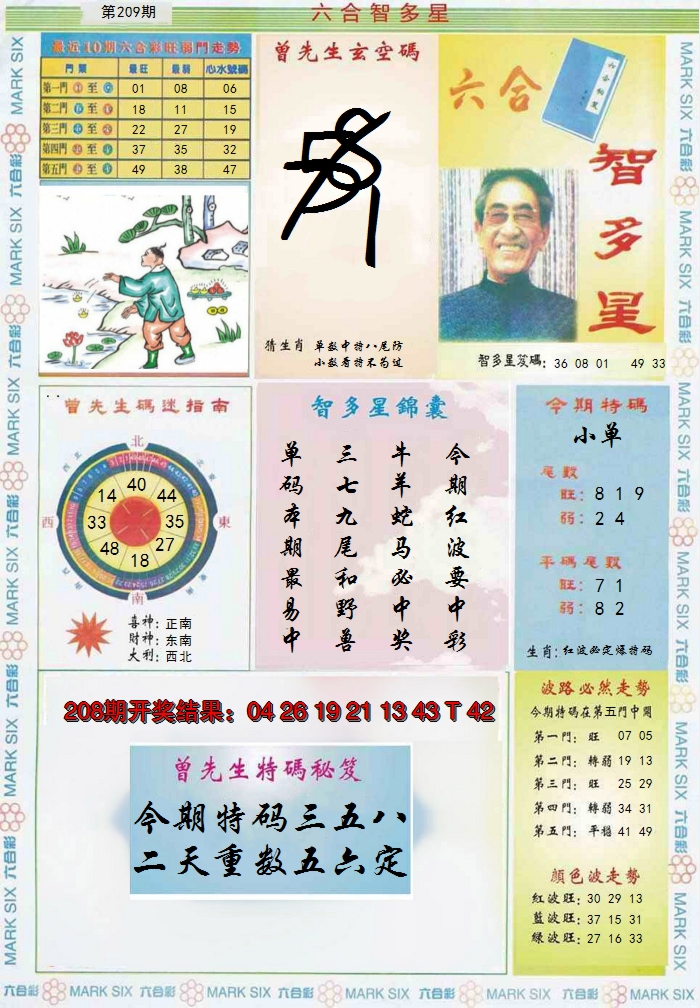 第209期
六合智多星
最近10期六合彩旺弱門走勢
門類 最旺 最弱 心水號碼
第一門 至 01 08 06
第二門 至 18 11 15
第三門 至 22 27 19
第四門 至 37 35 32
第五門 至 49 38 47
曾先生玄空碼
猜生肖 单数中特八尾防
小数看特不為过
六合
智多星
智多星笈碼: 36 08 01 49 33
曾先生碼迷指南
北
西
東
南
40
14 44
33 35
48 27
18
喜神: 正南
財神: 东南
大利: 西北
智多星錦囊
今期红波要中彩
牛羊蛇马必中奖
三七九尾和野兽
单码本期最易中
今期特碼
小单
尾數
旺: 8 1 9
弱: 2 4
平碼尾數
旺: 7 1
弱: 8 2
生肖: 红波必定爆特码
208期开奖结果: 04 26 19 21 13 43 T 42
曾先生特碼秘笈
今期特码三五八
二天重数五六定
波路必然走勢
今期特碼在第五門中開
第一門: 旺 07 05
第二門: 轉弱 19 13
第三門: 旺 25 29
第四門: 轉弱 34 31
第五門: 平穩 41 49
顏色波走勢
紅波旺: 30 29 13
藍波旺: 37 15 31
綠波旺: 27 16 33
MARK SIX 六合彩 MARK SIX 六合彩 MARK SIX 六合彩 MARK SIX 六合彩 MARK SIX 六合彩